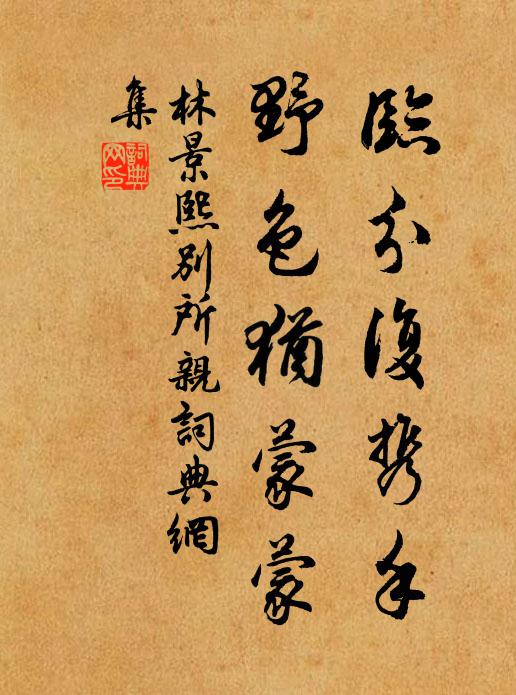 臨分復携手
野色猶蒙蒙
林景熙別所親詞典網
集
詞典
网印